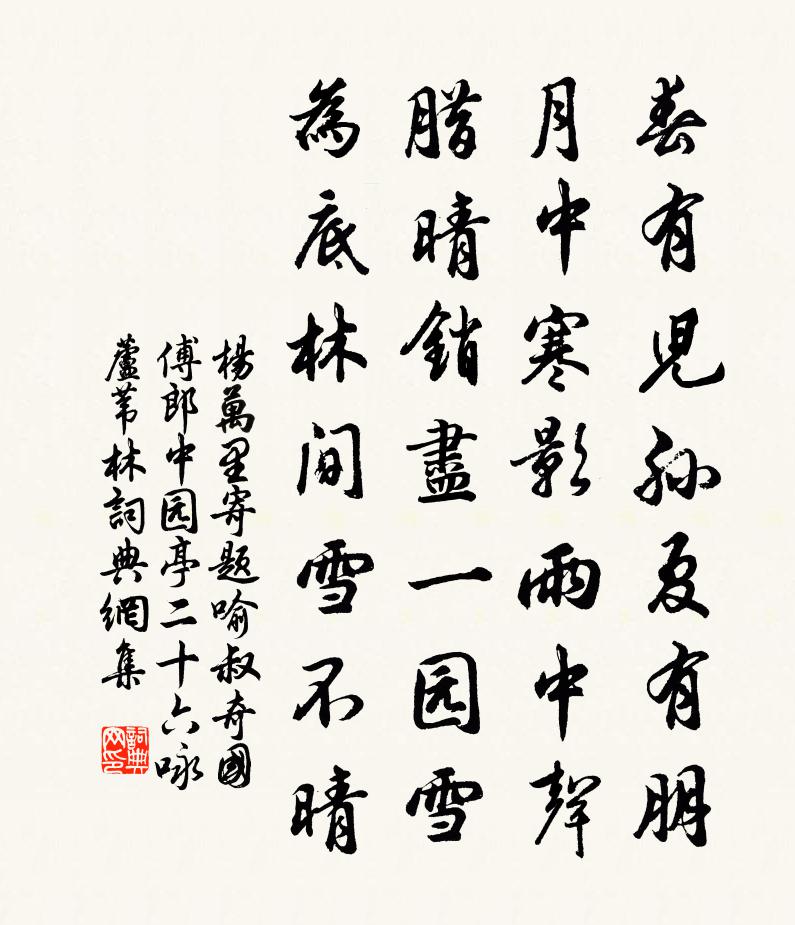 春有児孙夏有朋
月中寒影雨中聲
腊晴銷盡一园雪
為底林间雪不晴
楊萬里寄题喻叔奇國
傅郎中园亭二十六咏
蘆苇林詞典網集
詞典网印